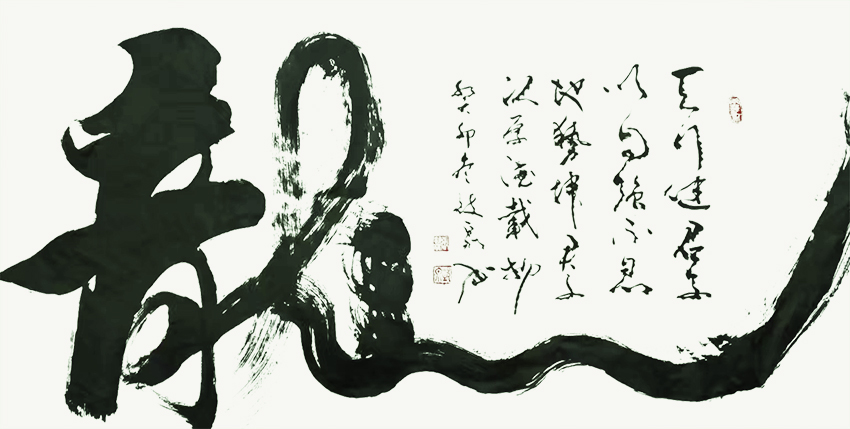 龍
天行健君子
以自強不息
地勢坤君子
以厚德載物
癸卯冬